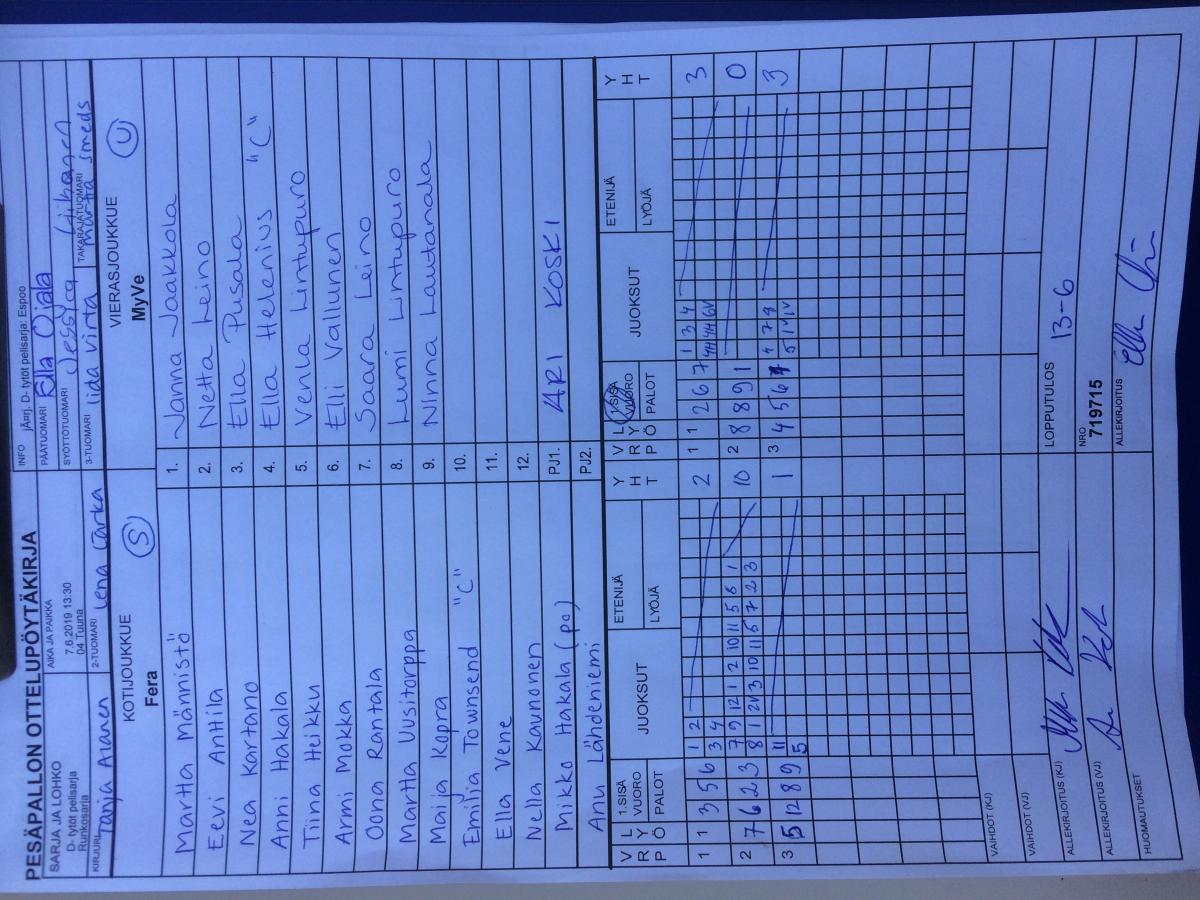 PESÄPALLON OTTELUPÖYTÄKIRJA
SARJA JA LOHKO
D- tytöt pelisarja
Runkosarja
AIKA JA PAIKKA
7.6.2019 13:30
04 Tuuna
INFO jÄ¤rj. D- tytöt pelisarja: Espoo
PÄÄTUOMARI Ella Ojala
SYÖTTÖTUOMARI Jessica
KIRJURI Tanja Alanen
2-TUOMARI Lena Carka
3-TUOMARI Iida Virta
TAKARAJATUOMARI Märta Smeds
KOTIJOUKKUE S
Fera
VIERASJOUKKUE U
MyVe
Martta Männistö 1. Janna Jaakkola
Eevi Anttila 2. Netta Leino
Nea Kartano 3. Ella Pusala
Anni Hakala 4. Ella Helenius "C"
Tiina Heikku 5. Venla Lintupuro
Armi Mokka 6. Elli Vallunen
Oona Rantala 7. Saara Leino
Martta Uusitorppa 8. Lumi Lintupuro
Maija Kopra 9. Ninna Lautanala
Emilja Townsend "C" 10.
Ella Vene 11.
Nella Kaunonen 12.
Mikko Hakala (pa) PJ1. ARI KOSKI
Anu Lähdeniemi PJ2.
V R P L Y Ö 1.SISÄ VUORO PALOT JUOKSUT ETENIJÄ LYÖJÄ Y H T V R P L Y Ö 1.SISÄ VUORO PALOT JUOKSUT ETENIJÄ LYÖJÄ Y H T
1 1 3 5 6 1 2 2 1 1 2 6 7 1 3 4 3
3 4 4H 4H 6V
2 7 6 2 3 7 9 12 1 2 10 11 5 6 1 10 2 8 8 9 1 0
8 1 2V 3 10 11 5 7 2 3
3 5 12 8 9 11 1 3 4 5 6 7 4 7 8 3
5 5 1V 1V
VAIHDOT (KJ)
VAIHDOT (VJ)
ALLEKIRJOITUS (KJ)
LOPPUTULOS 13-6
ALLEKIRJOITUS (VJ)
NRO
719715
HUOMAUTUKSET
ALLEKIRJOITUS